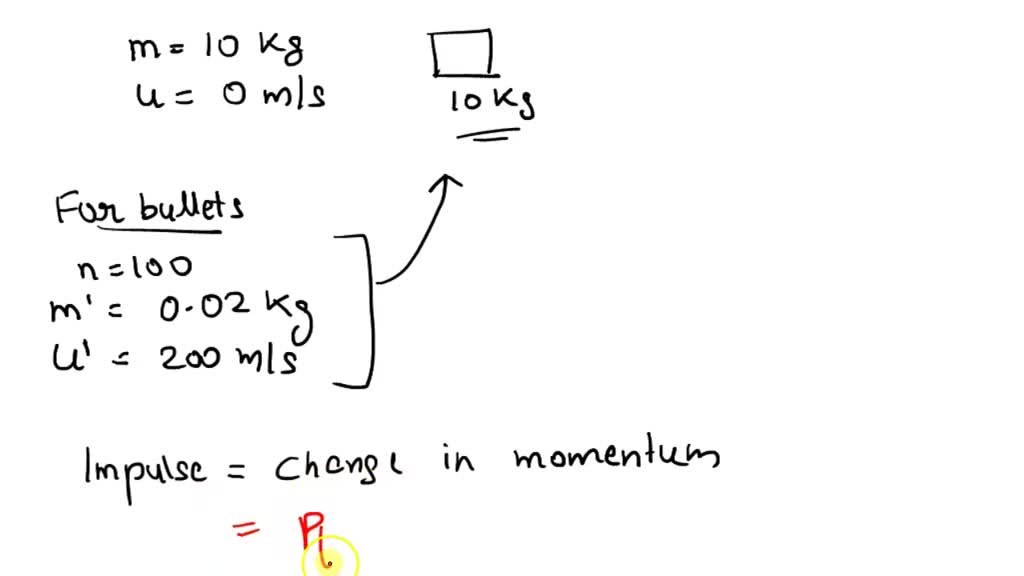 m = 10 Kg
u = 0 m/s
10 Kg
For bullets
n = 100
m' = 0.02 Kg
u' = 200 m/s
Impulse = change in momentum
= P